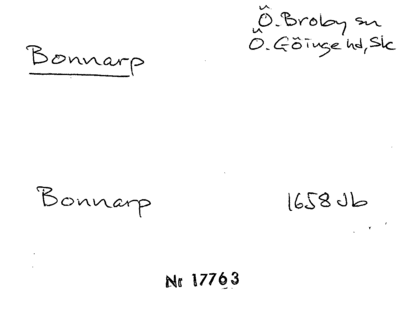 Ö. Broby sn
Bonnarp
Ö. Göinge hd, Sk
Bonnarp 1658 Jb
Nr 17763